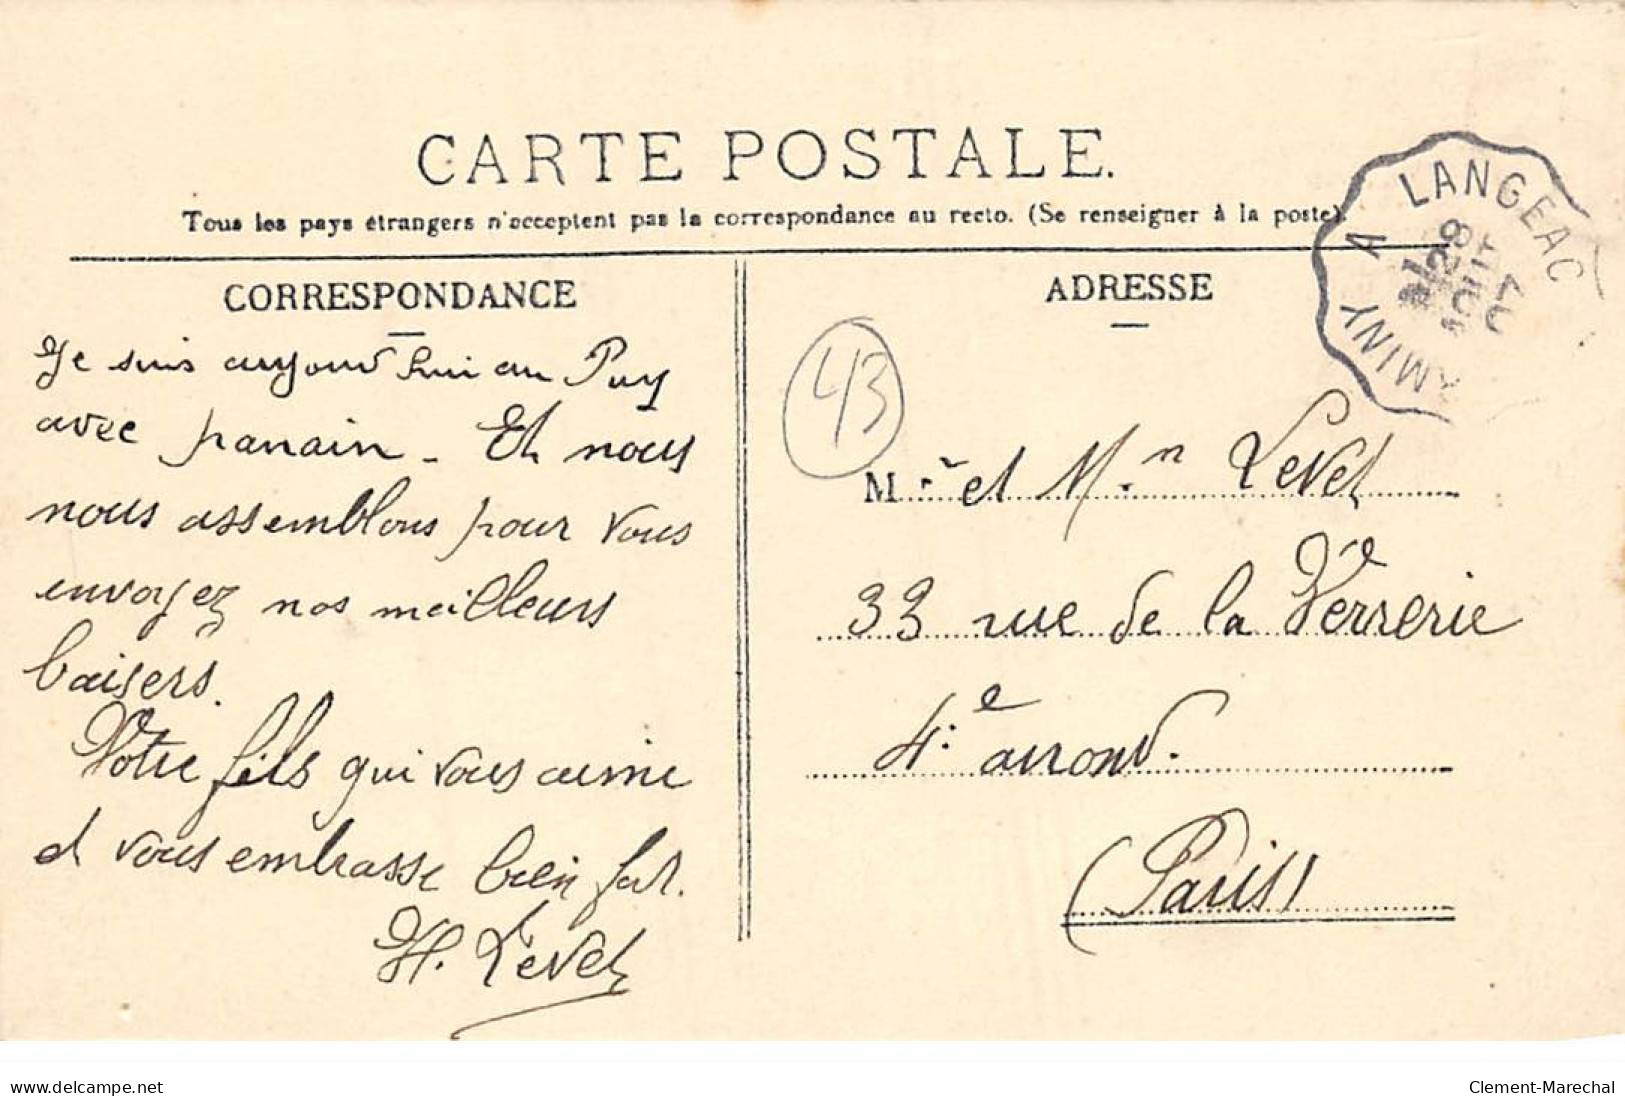 CARTE POSTALE.
Tous les pays étrangers n'acceptent pas la correspondance au recto. (Se renseigner à la poste).
CORRESPONDANCE
Je suis aujourd'hui au Puy
avec parrain - Et nous
nous assemblons pour vous
envoyez nos meilleurs
baisers.
Votre fils qui vous aime
et vous embrasse bien fort.
H. Levet
ADRESSE
43
LANGEAC
28
AOUT
07
M.r et M.me Levet
33 rue de la Verrerie
4.e arrond.
(Paris)
www.delcampe.net
Clement-Marechal